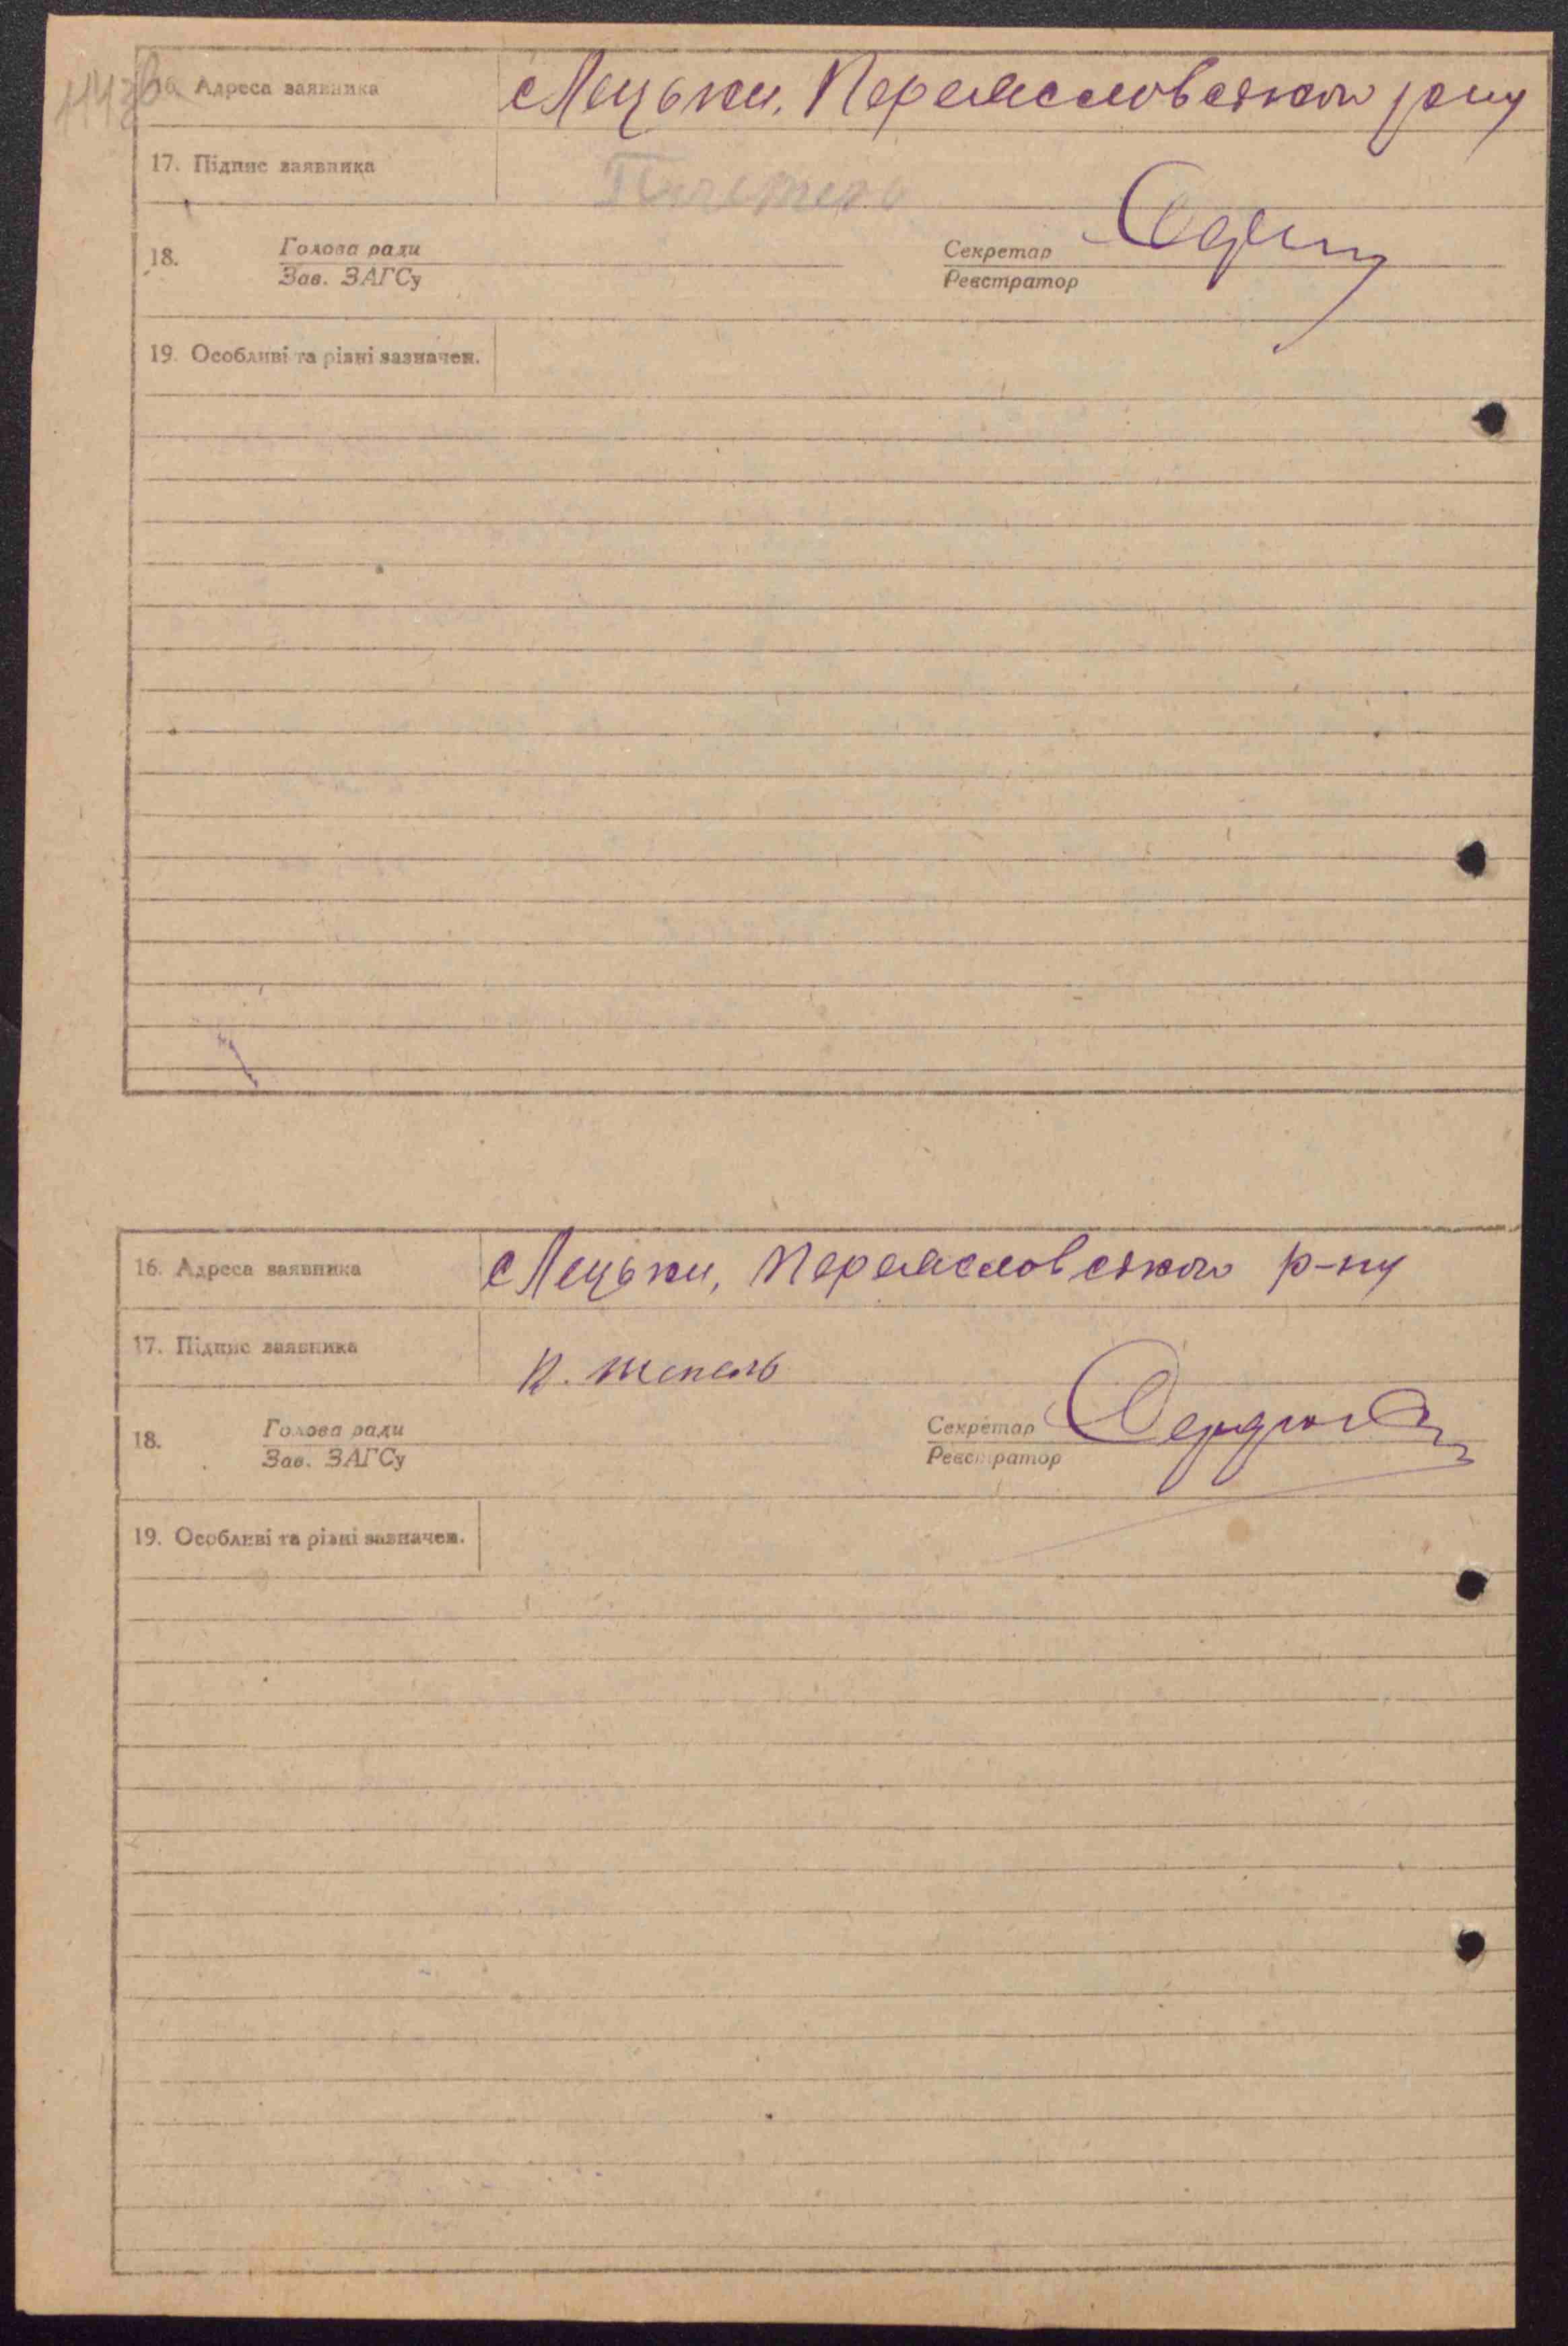 16. Адреса заявника с Лецьки, Переясловського р-ну
17. Підпис заявника
18. Голова ради Секретар
Зав. ЗАГСу Реєстратор
19. Особливі та різні зазначен.
16. Адреса заявника с Лецьки, Переясловського р-ну
17. Підпис заявника К. Шепель
18. Голова ради Секретар
Зав. ЗАГСу Реєстратор
19. Особливі та різні зазначен.